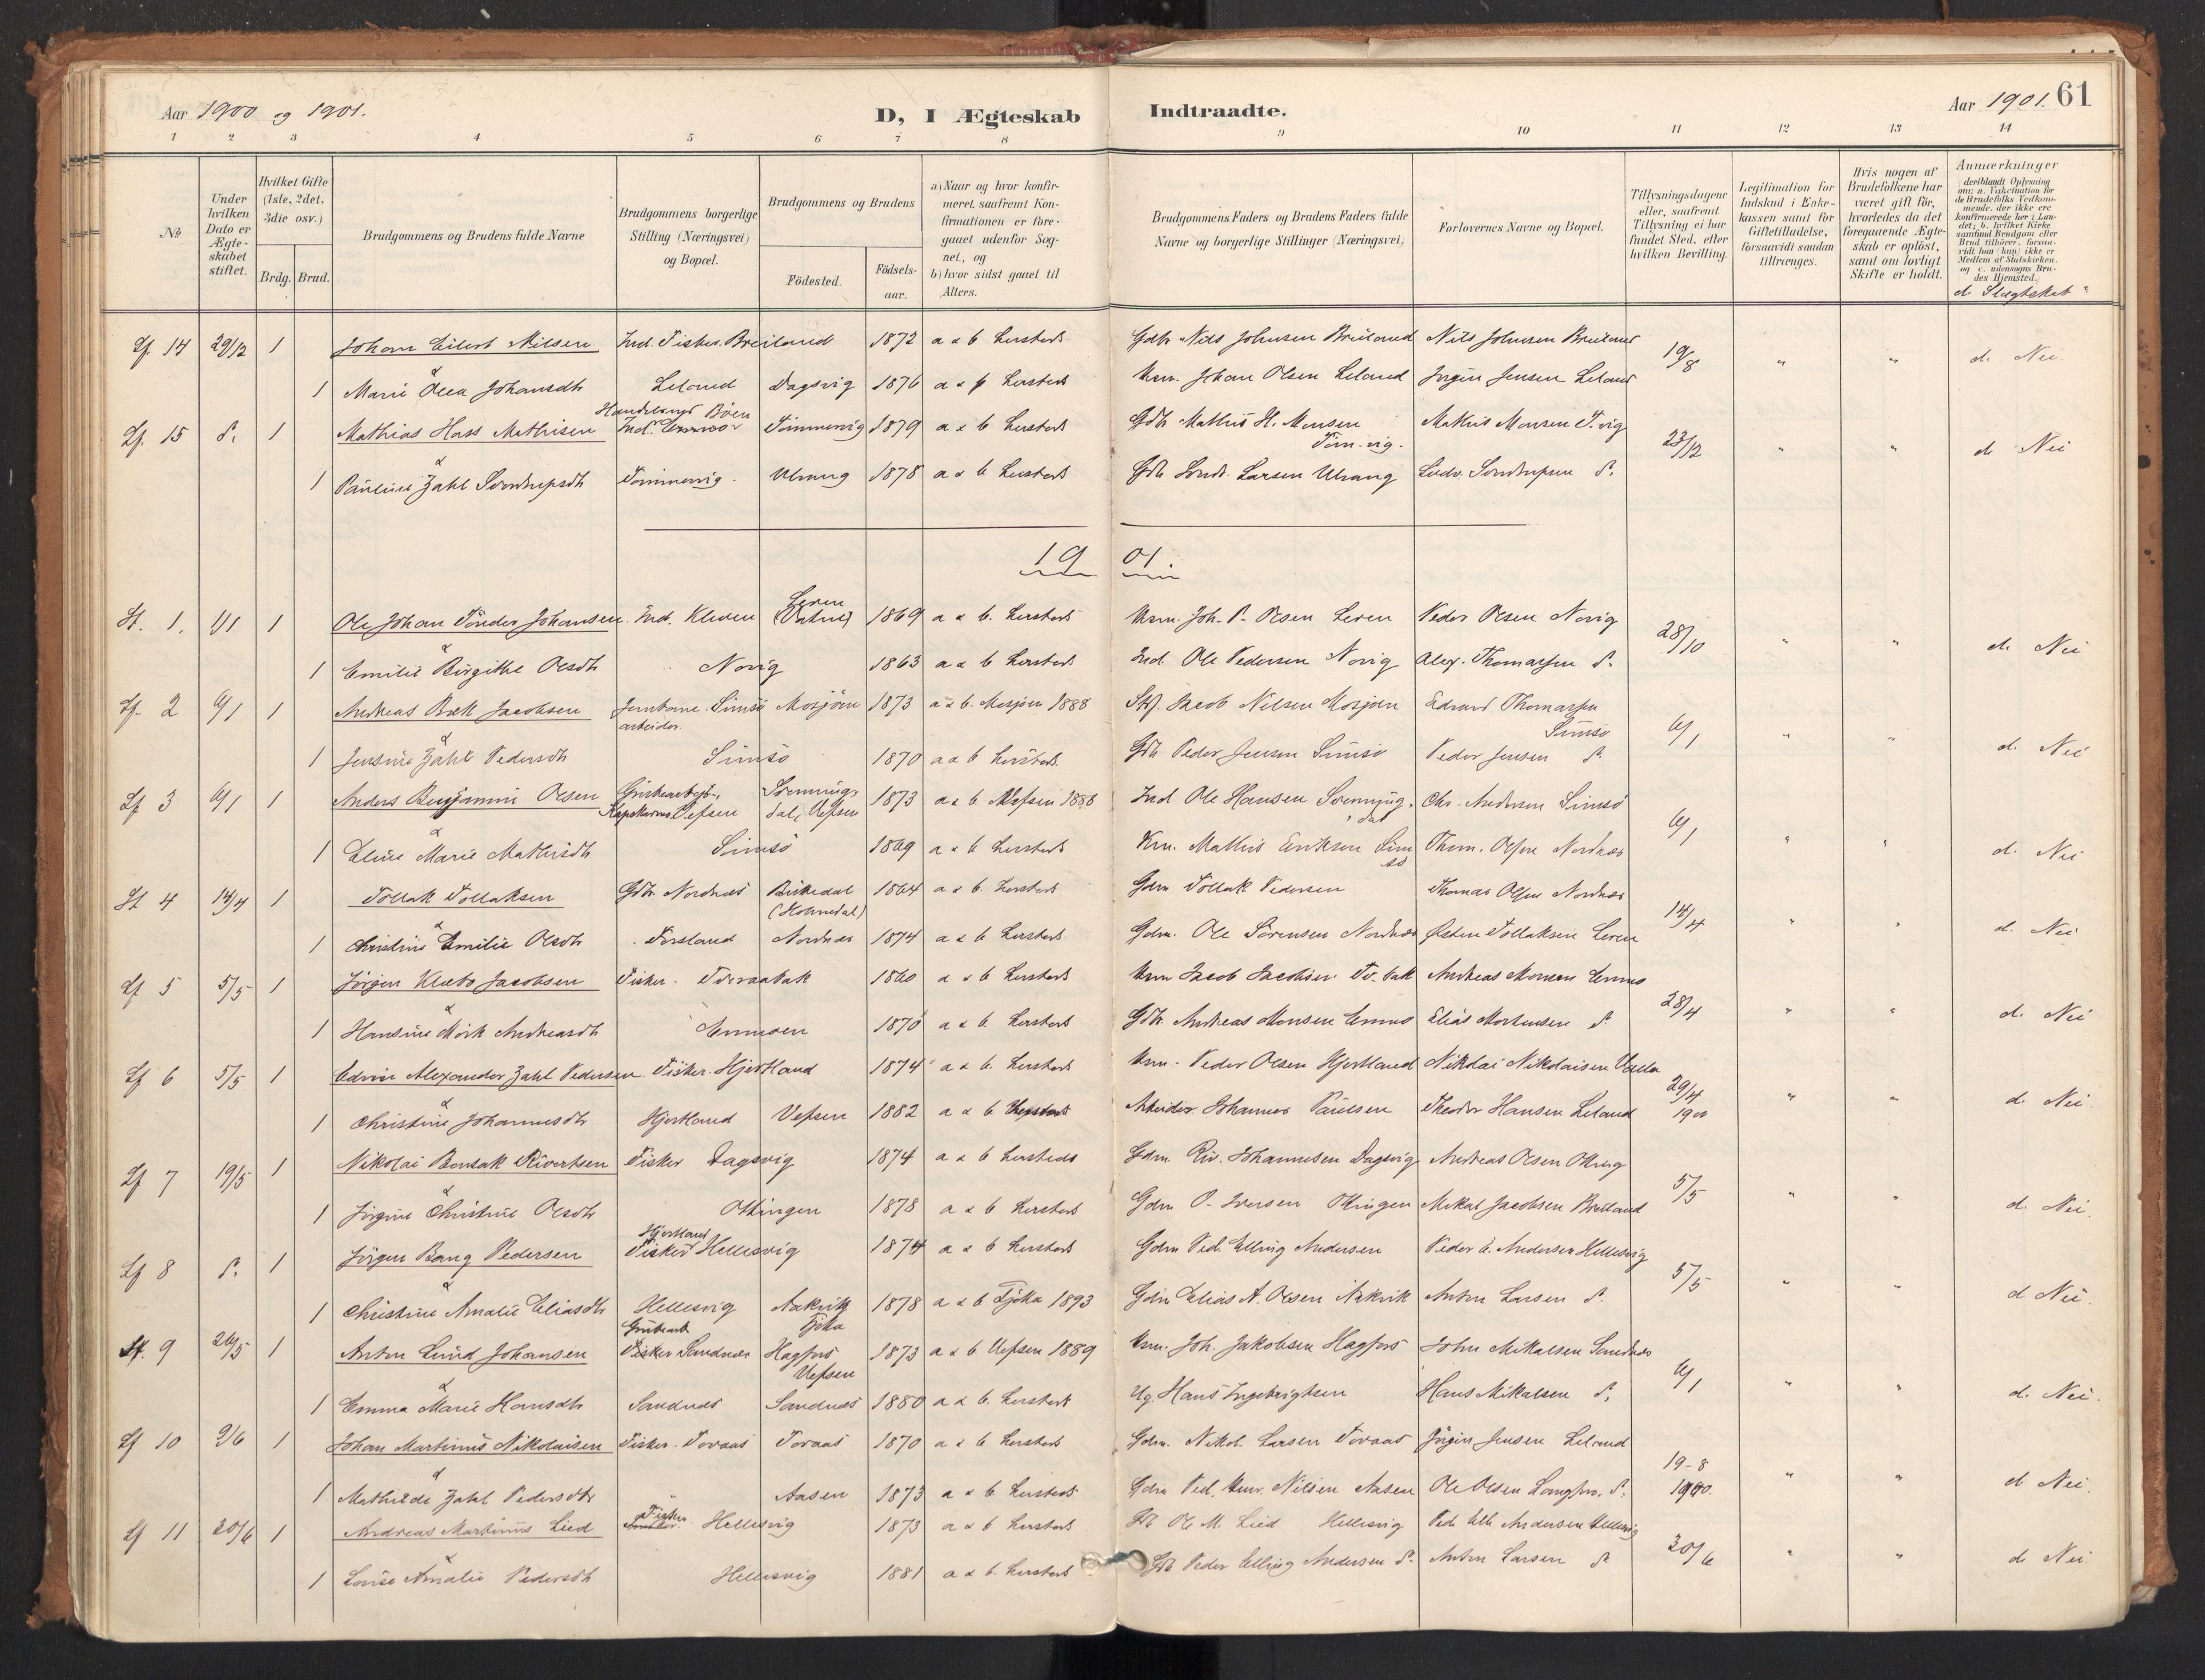 Aar 1900 og 1901. D, I Ægteskab Indtraadte. Aar 1901. 61
1 2 3 4 5 6 7 8 9 10 11 12 13 14
No
Under hvilken Dato er Ægteskabet stiftet.
Hvilket Gifte (1ste, 2det, 3die osv.)
Brdg. Brud.
Brudgommens og Brudens fulde Navne
Brudgommens borgerlige Stilling (Næringsvei) og Bopæl.
Brudgommens og Brudens
Födested.
Födselsaar.
a) Naar og hvor konfirmeret, saafremt Konfirmationen er foregaaet udenfor Sognet, og b) hvor sidst gaaet til Alters.
Brudgommens Faders og Brudens Faders fulde Navne og borgerlige Stillinger (Næringsvei)
Forlovernes Navne og Bopæl.
Tillysningsdagene eller, saafremt Tillysning ei har fundet Sted, efter hvilken Bevilling.
Legitimation for Indskud i Enkekassen samt for Giftetilladelse, forsaavidt saadan tiltrænges.
Hvis nogen af Brudefolkene har været gift för, hvorledes da det foregaaende Ægteskab er oplöst, samt om lovligt Skifte er holdt.
Anmærkninger
deriblandt Oplysning om: a. Vakcination for de Brudefolks Vedkommende, der ikke ere konfirmerede her i Landet; b. hvilket Kirkesamfund Brudgom eller Brud tilhörer, forsaavidt han (hun) ikke er Medlem af Statskirken, og c. udensogns Brudes Hjemsted.
d. Slægtskab "
Lf. 14 29/12 1 Johan Eilert Nilsen Ind. Fisker. Breiland 1872 a & b Hersteds Gdbr Nils Johnsen Breiland Nils Johnsen Breiland 19/8 " " d. Nei.
&
1 Marie Olea Johansdtr Leland Dagsvig 1876 a & b Hersteds Husm. Johan Olsen Leland Jörgen Jensen Leland
Lf. 15 d. 1 Mathias Hass Mathisen Ind. Tömmervig 1879 a & b Hersteds Gdbr Mathis H. Monsen Töm.vig. Mathis Monsen T.vig 23/12 " " d. Nei
&
1 Pauline Zahl Sverdrupsdtr Tömmervig. Ulvang 1878 a & b Hersteds Larsen Ulvang Ludv. d.
1901.
1. 1/1 1 Ole Johan Tönder Johansen. Ind. Kleven Leren 1869 a & b. Hersteds Husm. Joh. P. Olsen Leren Peder Olsen Novig 28/10 " " d. Nei
&
1 Emilie Birgithe Olsdtr Novig 1863 a & b Hersteds Ind. Ole Pedersen Novig Alex. Thomassen d.
Lf. 2 6/1 1 Andreas Bæk Jacobsen Jernbanearbeider. Simsö Mosjöen 1873 a & b. Mosjöen 1888 Jacob Nilsen Mosjöen Edvard Thomassen Simsö 6/1 " " d. Nei
&
1 Jensine Zahl Pedersdtr Simsö 1870 a & b Hersteds. Gdbr Peder Jensen Simsö Peder Jensen d.
Lf 3 6/1 1 Anders Benjamin Olsen Vefsen dal, Vefsen 1873 a & b Vefsen 1888 Ind. Ole Hansen dal Chr. Andersen Simsö 6/1 " " d. Nei
&
1 Eline Marie Mathisdtr Simsö 1869 a & b Hersteds Mathis Eriksen Simsö Thom. Olsen Nordnæs
4 14/4 1 Tollak Tollaksen Gdbr Nordnæs Birkedal 1864 a & b. Hersteds Gdm Tollak Pedersen Thomas Olsen Nordnæs 14/4 " " d. Nei
&
1 Christine Emilie Olsdtr Forsland Nordnæs 1874 a & b Hersteds Gdm. Ole Sörensen Nordnæs Östen Tollaksen Leren
Lf 5 5/5 1 Jörgen Klæbo Jacobsen Fisker. Tveraabak 1860 a & b Hersteds Husm Jacob Jacobsen Tv.bak Andreas Monsen 28/4 " " d. Nei
&
1 Hansine Mörk Andreasdtr 1870 a & b. Hersteds Gdbr. Andreas Monsen Elias Mortensen d.
Lf 6 5/5 1 Edvin Alexander Zahl Pedersen. Fisker. Hjortland 1874 a & b. Hersteds Husm. Peder Olsen Hjortland Nikolai Nikolaisen 29/4 1900 " " d. Nei.
&
1 Christine Johannesdtr Hjortland Vefsen 1882 a & b Hersteds Arbeider Johannes Paulsen Theodor Hansen Leland
Lf 7 19/5 1 Nikolai Bensak Rivertsen Fisker Dagsvig 1874 a & b Herstedes Gdm. Riv. Johannesen Dagsvig Andreas Olsen 5/5 " " d. Nei.
&
1 Jörgine Christine Olsdtr Ottingen 1878 a & b Hersteds Gdm O. Iversen Mikal Jacobsen Breiland
Lf 8 d. 1 Jörgen Bang Pedersen Hjortland Fisker Hellesvig 1874 a & b Hersteds Gdm Ped. Elling Andersen Peder E. Andersen Hellesvig 5/5 " " d Nei.
&
1 Christine Amalie Eliasdtr Hellesvig Aakvik Tjötta 1878 a & b Tjötta 1893 Gdm Elias A. Olsen Aakvik Anton Larsen d.
Lf. 9 26/5 1 Anton Lund Johansen Grubearb Fisker Sandnes Hagfors Vefsen 1873 a & b Vefsen 1889 Husm. Joh. Jakobsen Hagfors John Mikalsen Sandnæs 6/1 " " d. Nei.
&
1 Emma Marie Hansdtr Sandnæs Sandnæs 1880 a & b. Hersteds Ug. Hans Ingebrigtsen Hans Mikalsen d.
Lf 10 9/6 1 Johan Martinus Nikolaisen Fisker. Toraas Toraas 1870 a & b Hersteds Gdm. Nikol. Larsen Toraas Jörgen Jensen Leland 19-8 1900. " " d Nei.
&
1 Mathilde Zahl Pedersdtr " Aasen 1873 a & b Hersteds Gdm Ped. Nilsen Aasen Ole Olsen d.
Lf 11 20/6 1 Andreas Martinus Lied Fisker Hellesvig 1873 a & b Hersteds Ole M. Lied Hellesvig Ped. Andersen Hellesvig 20/6 " " d. Nei.
&
1 Lovise Amalie Pedersdtr Hellesvig 1881 a & b. Hersteds Peder Elling Andersen d. Anton Larsen d.